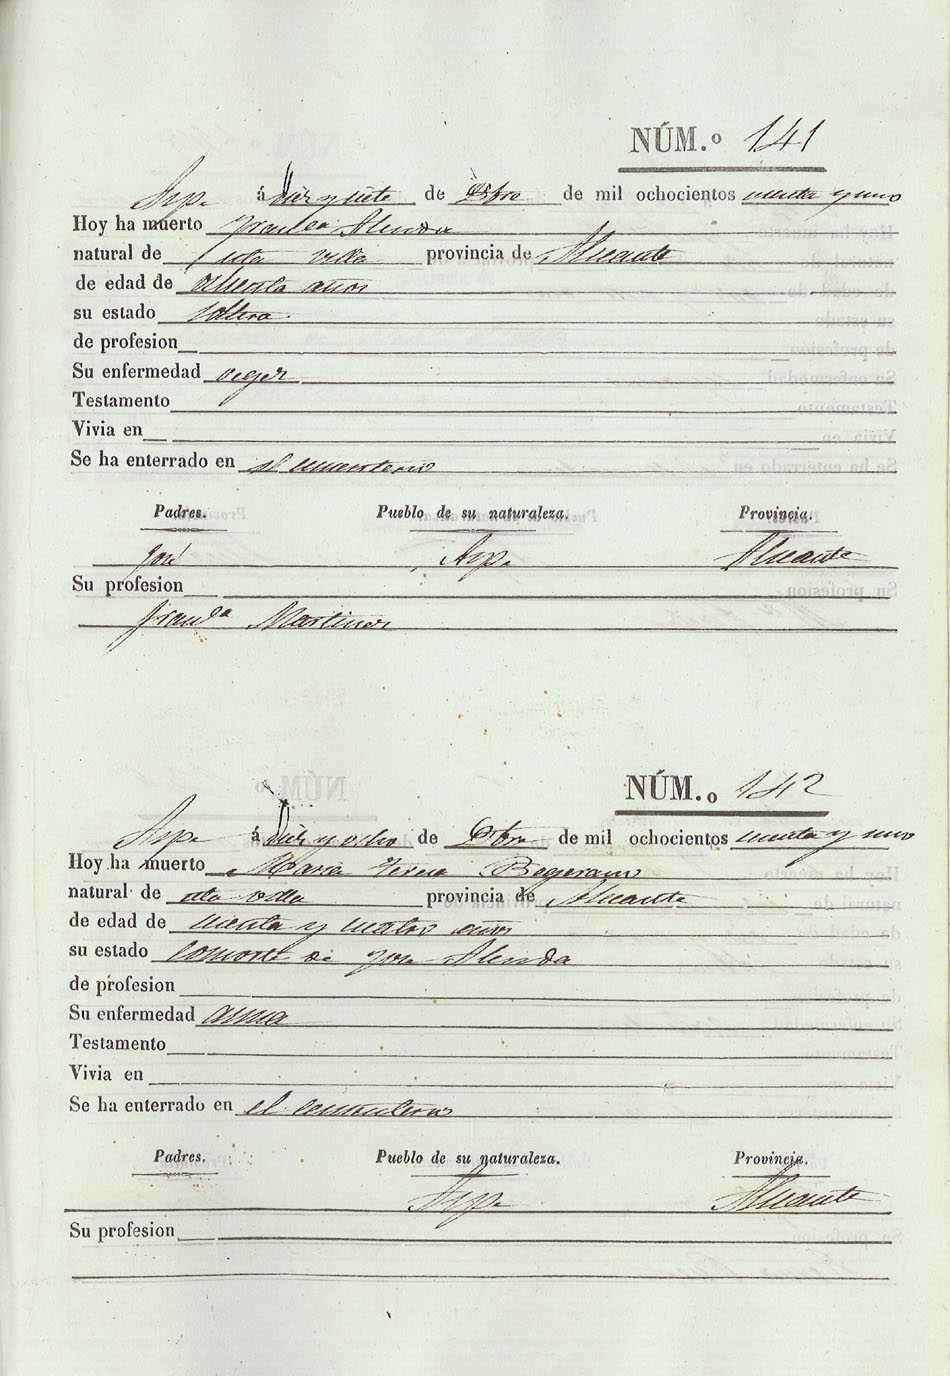 NÚM.º 141
Aspe á diez y siete de 8bre de mil ochocientos cuarenta y uno
Hoy ha muerto Franca Alenda
natural de esta villa provincia de Alicante
de edad de ochenta años
su estado soltera
de profesion
Su enfermedad vegez
Testamento
Vivia en
Se ha enterrado en el cementerio
Padres. Pueblo de su naturaleza. Provincia.
José Aspe Alicante
Su profesion
Franca Martinez
NÚM.o 142
Aspe á diez y ocho de 8bre de mil ochocientos cuarenta y uno
Hoy ha muerto Maria Teresa
natural de esta villa provincia de Alicante
de edad de y cuatro años
su estado consorte de Jose Alenda
de profesion
Su enfermedad asma
Testamento
Vivia en
Se ha enterrado en el cementerio
Padres. Pueblo de su naturaleza. Provincia.
Aspe Alicante
Su profesion